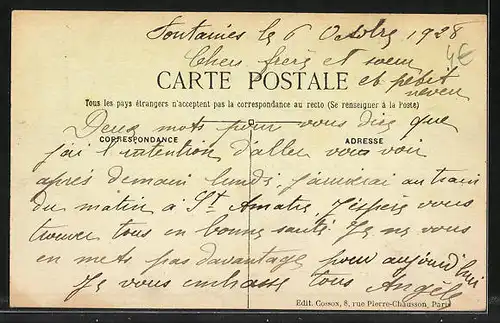 Fontaines le 6 Octobre 1928
4€
Chers frère et soeur
et petit
neveu
CARTE POSTALE
Tous les pays étrangers n'acceptent pas la correspondance au recto (Se renseigner à la Poste)
Deux mots pour vous dire que
CORRESPONDANCE
ADRESSE
j'ai l'intention d'aller vous voir
après demain lundi. J'arriverai au train
du matin à St Amatre. J'espère vous
trouver tous en bonne santé. Je ne vous
en mets pas davantage pour aujourd'hui
Je vous embrasse tous Angèle
Edit. Cossox, 8, rue Pierre-Chausson, Paris